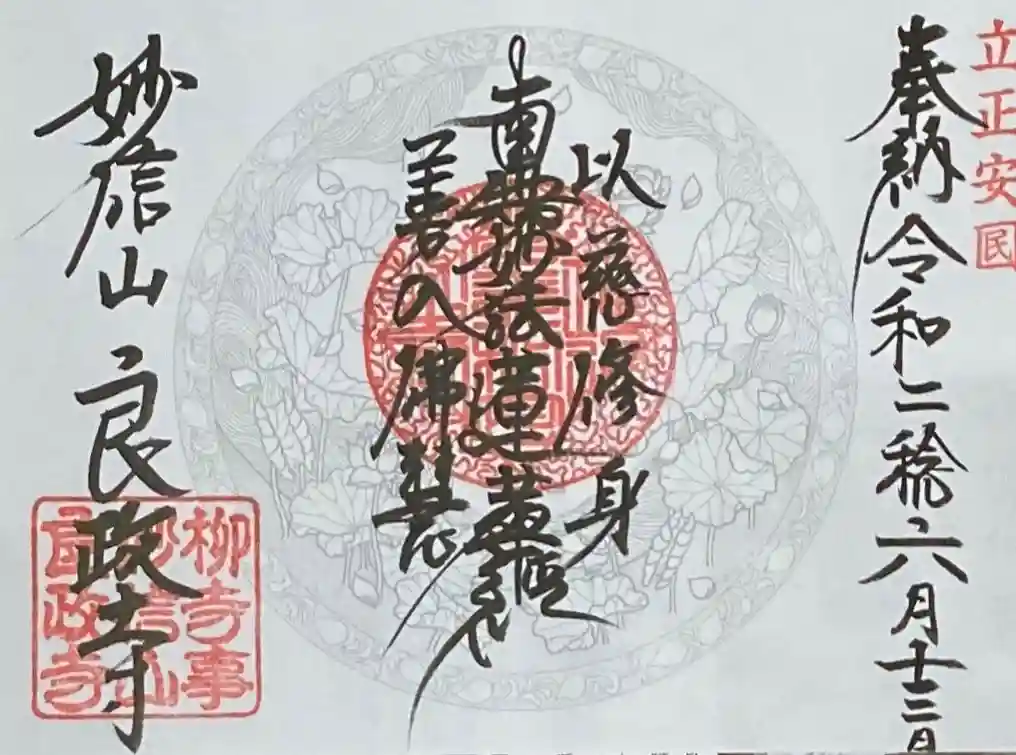 立正安囻
奉納 令和二稔六月十三日
以慈修身
南無妙法蓮華經
善入佛慧
妙信山 良政寺
柳寺事
妙信山
良政寺